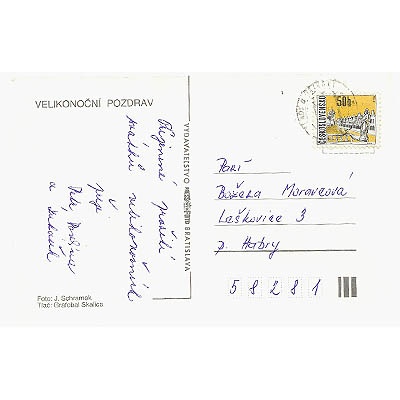 VELIKONOČNÍ POZDRAV
Příjemné prožití
svátků velikonočních
přejí
a
Foto: J. Schramek
Tlač: Grafobal Skalica
VYDAVATEĽSTVO
BRATISLAVA
50h
ČESKOSLOVENSKO
Paní
Božena Moravcová
Leškovice 3
p. Habry
58281